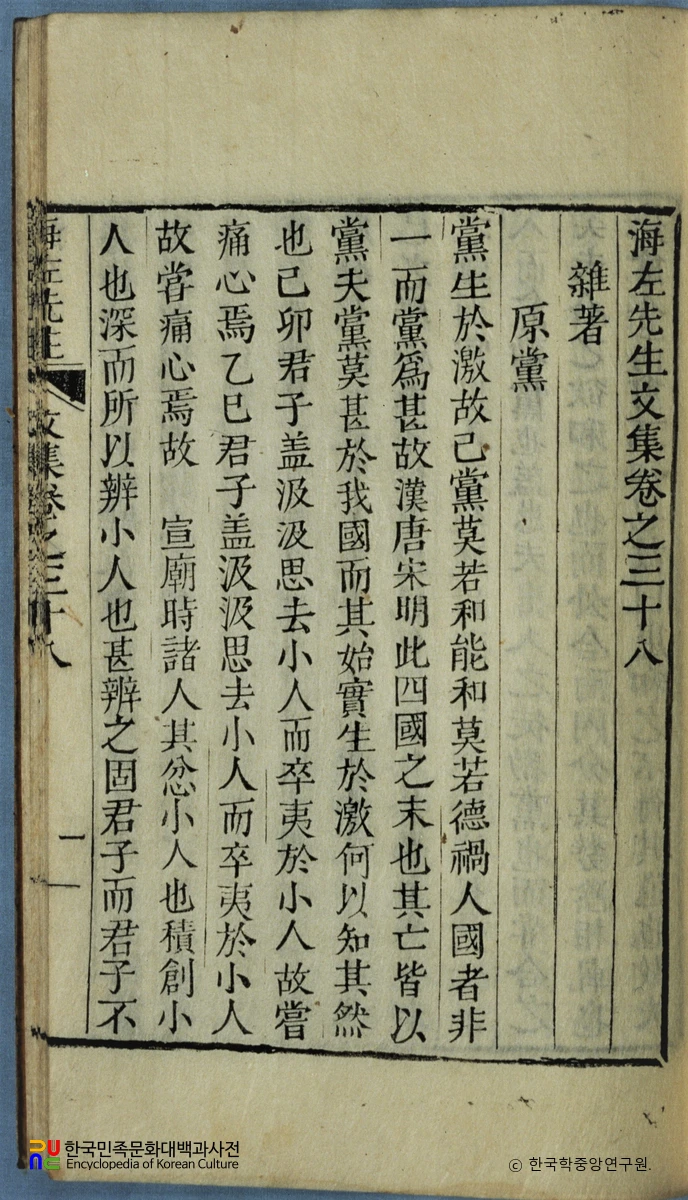 海左先生文集卷之三十八
雜著
原黨
黨生於激故己黨莫若和能和莫若德禍人國者非
一而黨爲甚故漢唐宋明此四國之末也其亡皆以
黨夫黨莫甚於我國而其始實生於激何以知其然
也己卯君子盖汲汲思去小人而卒夷於小人故嘗
痛心焉乙巳君子盖汲汲思去小人而卒夷於小人
故嘗痛心焉故 宣廟時諸人其忿小人也積創小
人也深而所以辨小人也甚辨之固君子而君子不
海左先生 文集卷之三十八 一
한국민족문화대백과사전
Encyclopedia of Korean Culture
© 한국학중앙연구원.